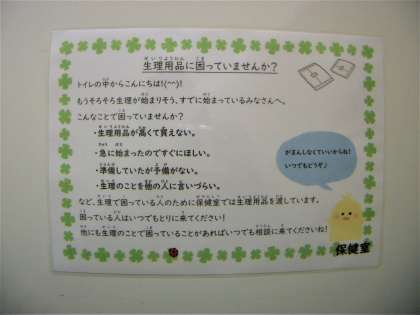 生理用品に困っていませんか？
トイレの中からこんにちは！(^^)！
もうそろそろ生理が始まりそう、すでに始まっているみなさんへ。
こんなことで困っていませんか？
・生理用品が高くて買えない。
・急に始まったのですぐにほしい。
・準備していたが予備がない。
・生理のことを他の人に言いづらい。
がまんしなくていいからね！
いつでもどうぞ♪
など、生理で困っている人のために保健室では生理用品を渡しています。
困っている人はいつでもとりに来てください！
他にも生理のことで困っていることがあればいつでも相談に来てくださいね！
保健室